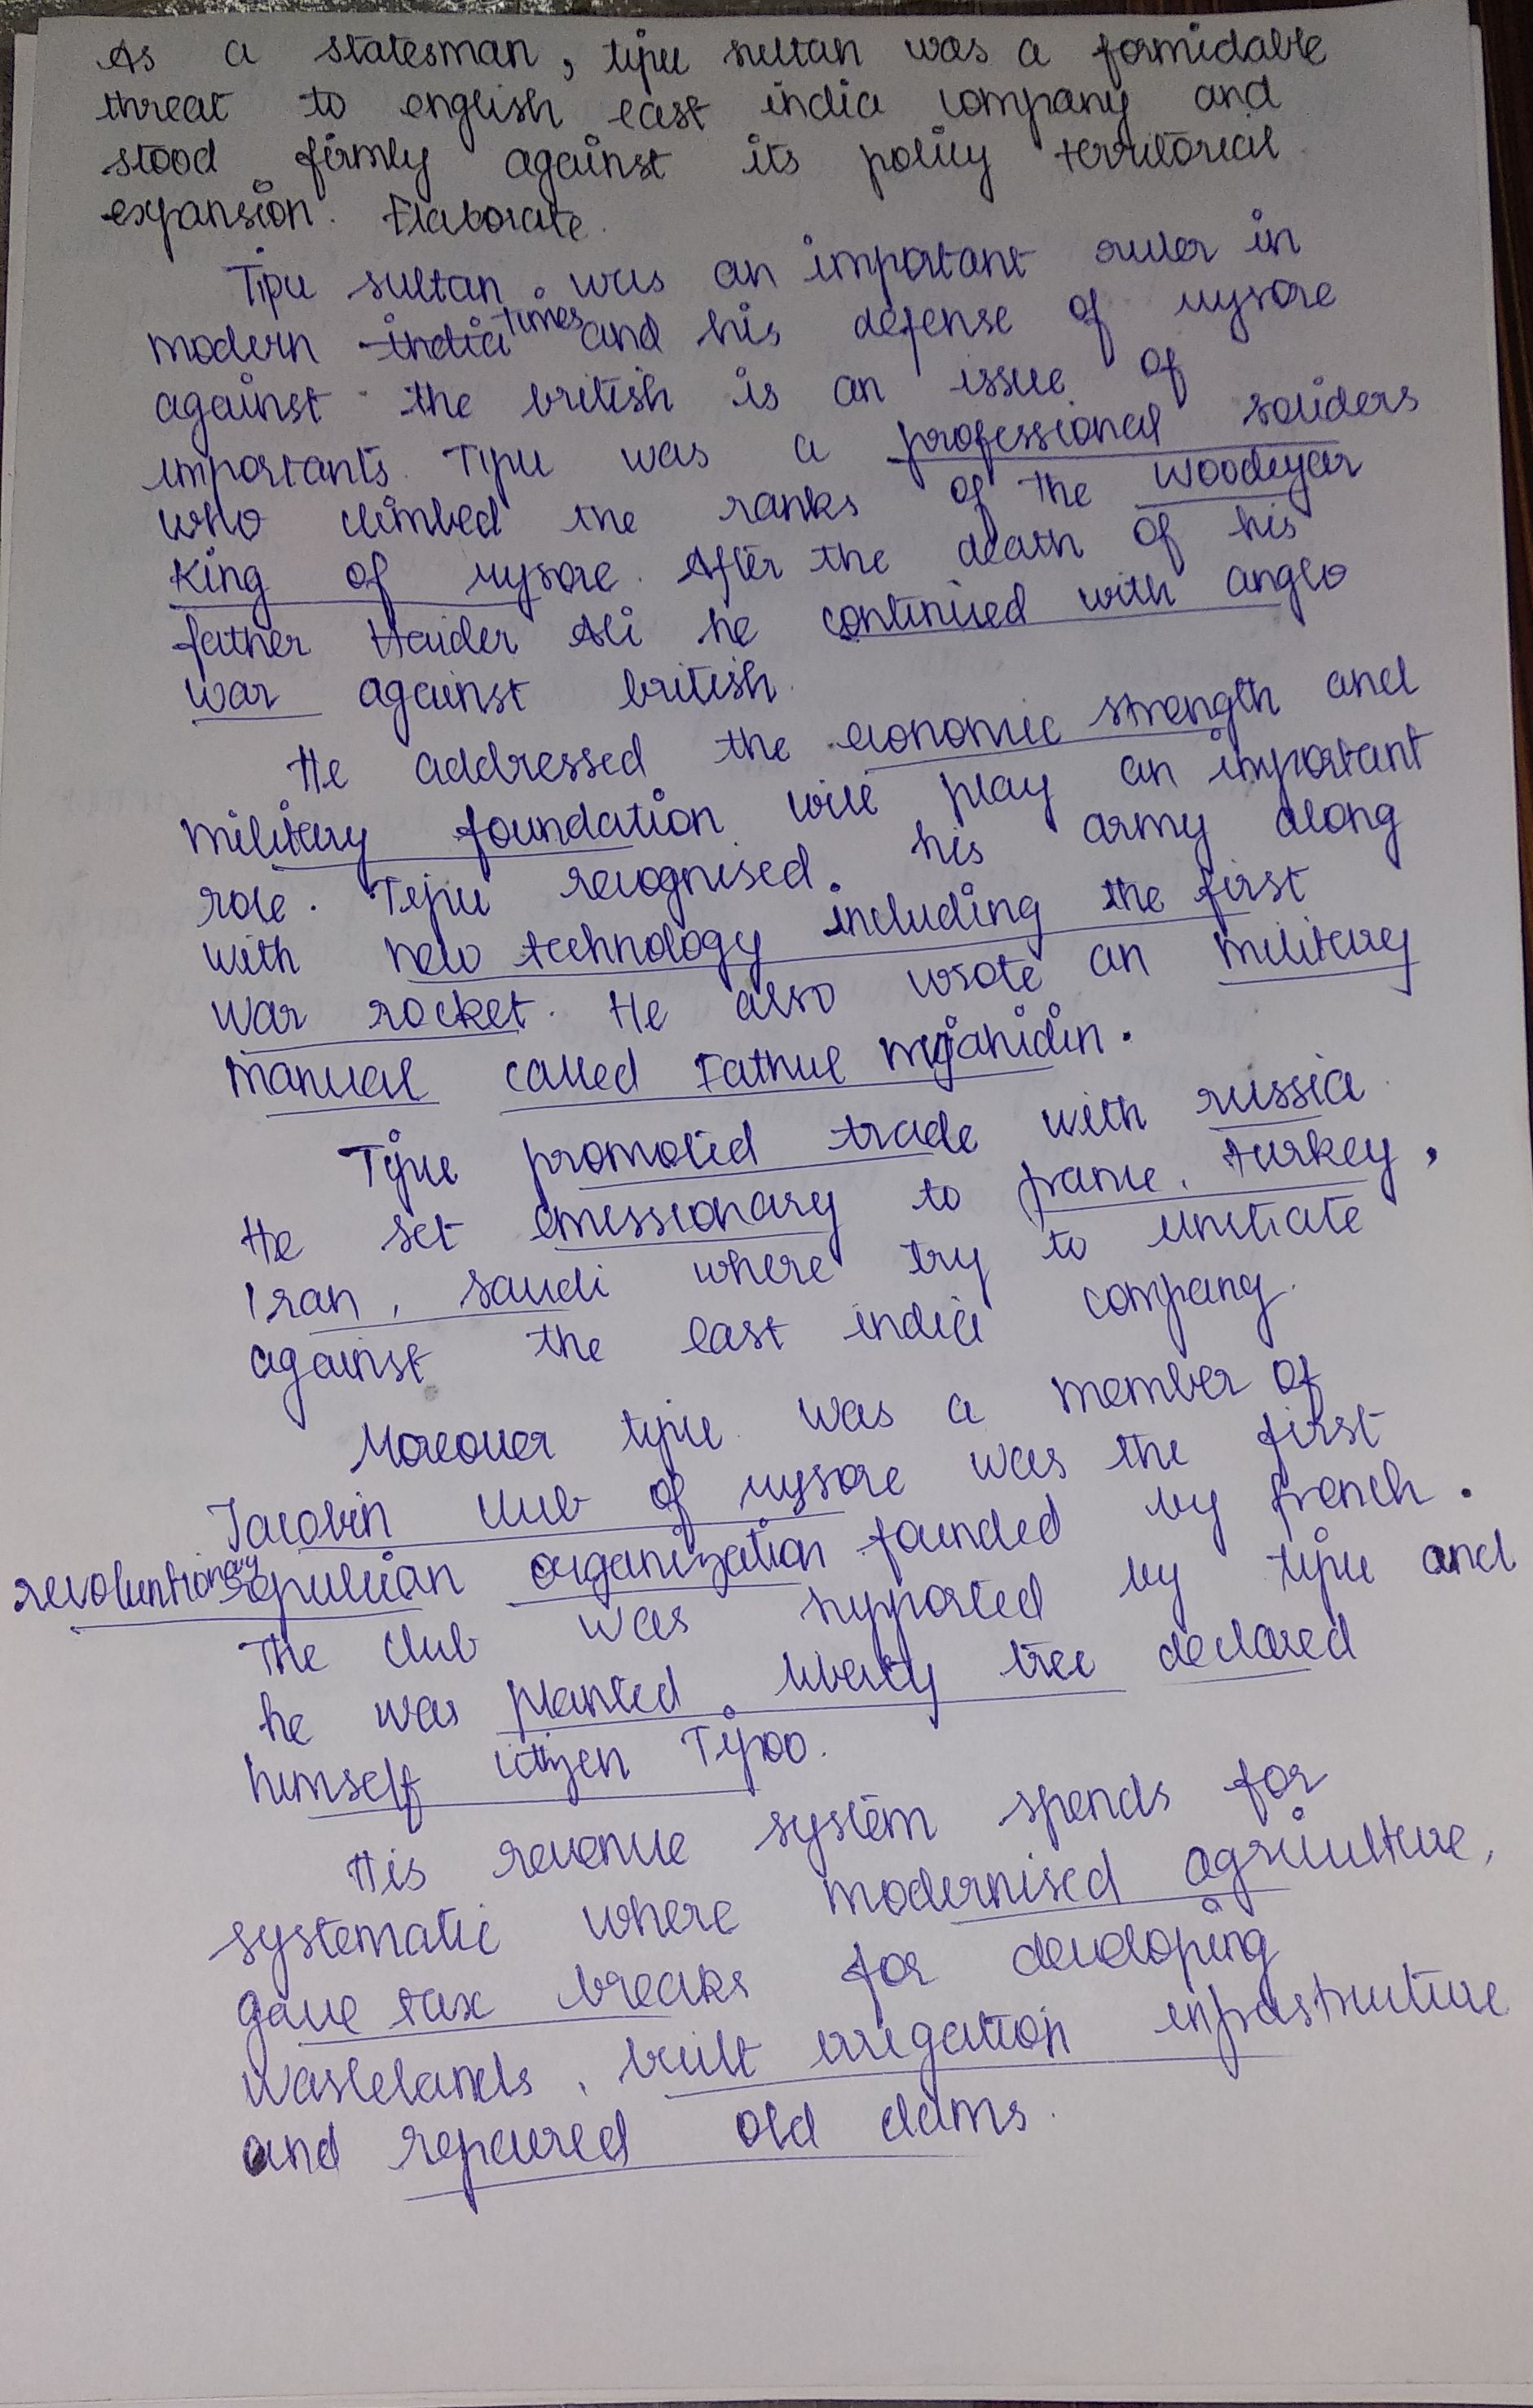 As a statesman, tipu sultan was a formidable
threat to english east india company and
stood firmly against its policy territorial
expansion. Elaborate.
Tipu sultan was an important ruler in
modern india times and his defense of mysore
against the british is an issue of
importants. Tipu was a professional soliders
who climbed the ranks of the Woodeyar
King of mysore. After the death of his
father Haider Ali he continued with anglo
war against british.
He addressed the economic strength and
military foundation will play an important
role. Tipu recognised his army along
with new technology including the first
war rocket. He also wrote an military
manual called Fathul mujahidin.
Tipu promoted trade with russia.
He set emissionary to france, turkey,
Iran, saudi where try to initiate
against the east india company.
Moreover tipu was a member of
Jacobin club of mysore was the first
revoluntionary republican organization founded by french.
The club was supported by tipu and
he was planted liberty tree declared
himself citizen Tipoo.
His revenue system spends for
systematic where modernised agriculture,
gave tax breaks for developing
wastelands, built irrigation infrastructure
and repaired old dams.